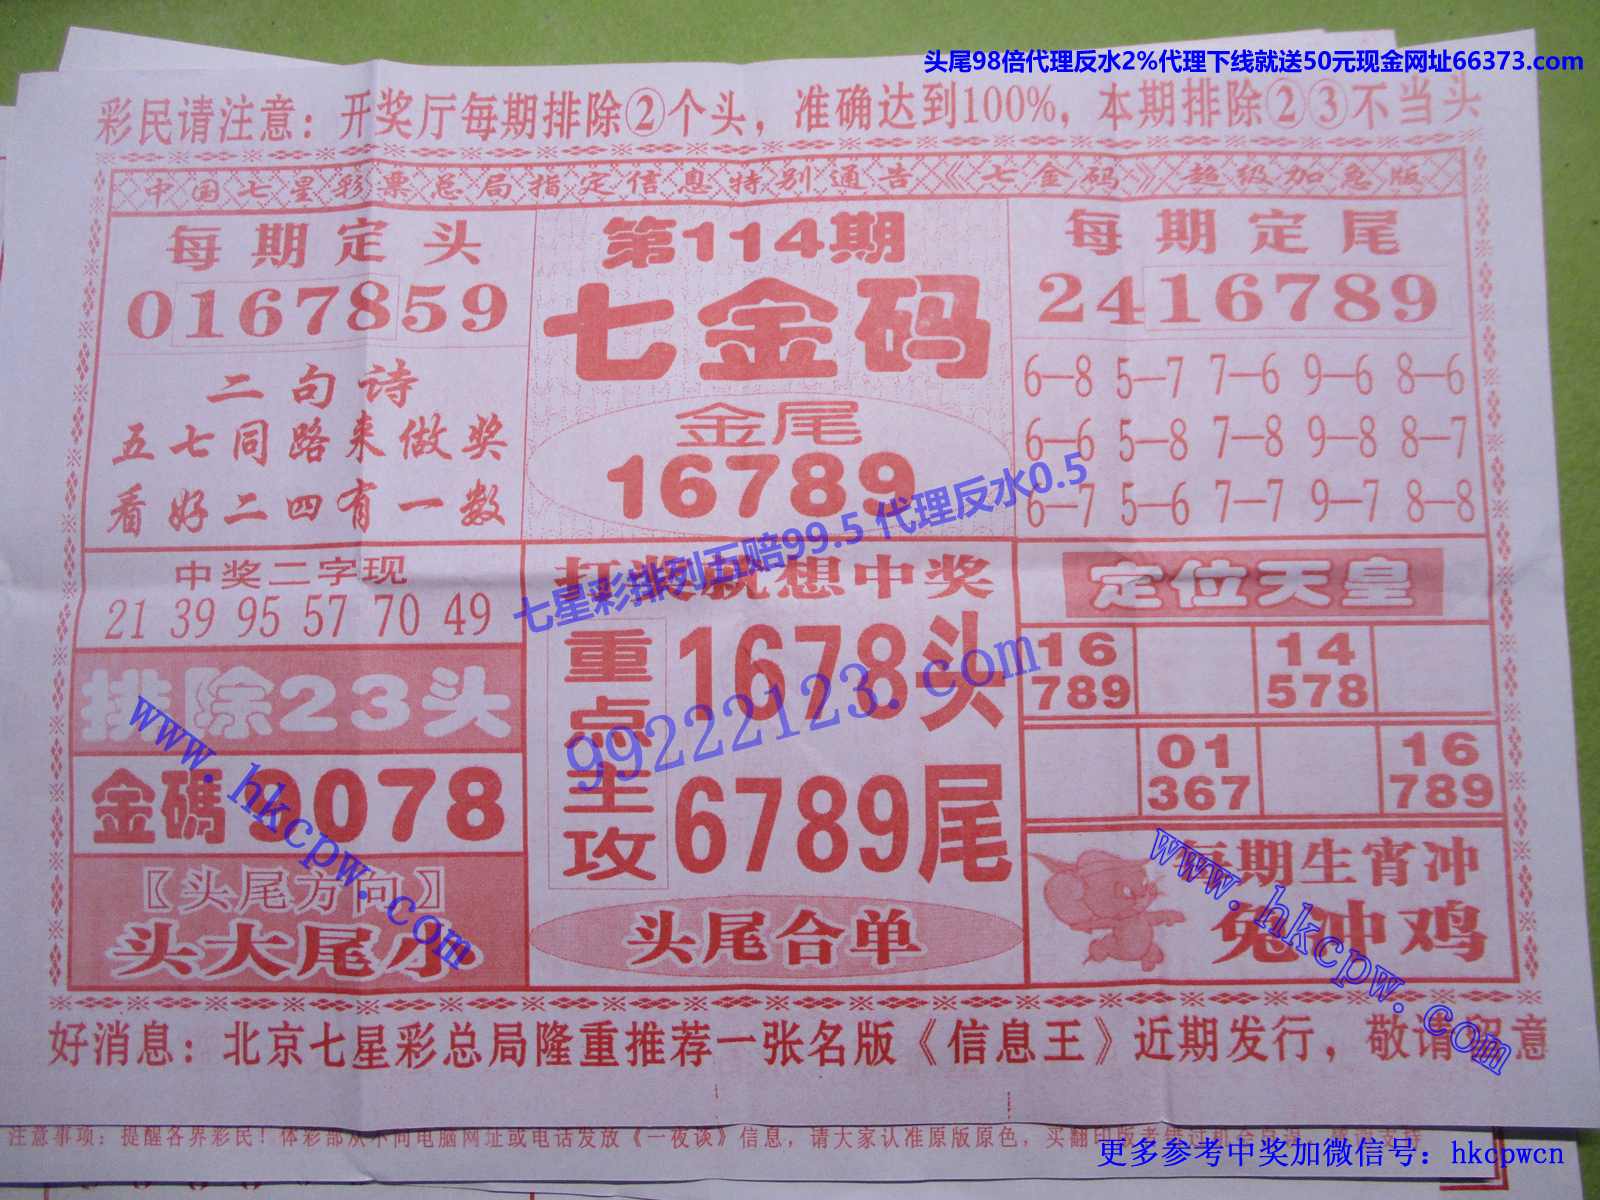 头尾98倍代理反水2%代理下线就送50元现金网址66373.com
彩民请注意：开奖厅每期排除②个头，准确达到100%，本期排除②③不当头
中国七星彩票总局指定信息特别通告《七金码》超级加急版
每期定头
0167859
二句诗
五七同路来做奖
看好二四有一数
第114期
七金码
金尾
16789
每期定尾
2416789
6—8 5—7 7—6 9—6 8—6
6—6 5—8 7—8 9—8 8—7
6—7 5—6 7—7 9—7 8—8
七星彩排列五赔99.5 代理反水0.5
中奖二字现
21 39 95 57 70 49
排除23头
金碼9078
〖头尾方向〗
头大尾小
打奖就想中奖
重点主攻
1678头
6789尾
99222123.com
头尾合单
定位天皇
16
789
14
578
01
367
16
789
每期生肖冲
兔冲鸡
www.hkcpw.com
www.hkcpw.com
好消息：北京七星彩总局隆重推荐一张名版《信息王》近期发行，敬请留意
注意事项：提醒各界彩民！体彩部从不向电脑网址或电话发放《一夜谈》信息，请大家认准原版原色，买翻印版者
更多参考中奖加微信号：hkcpwcn